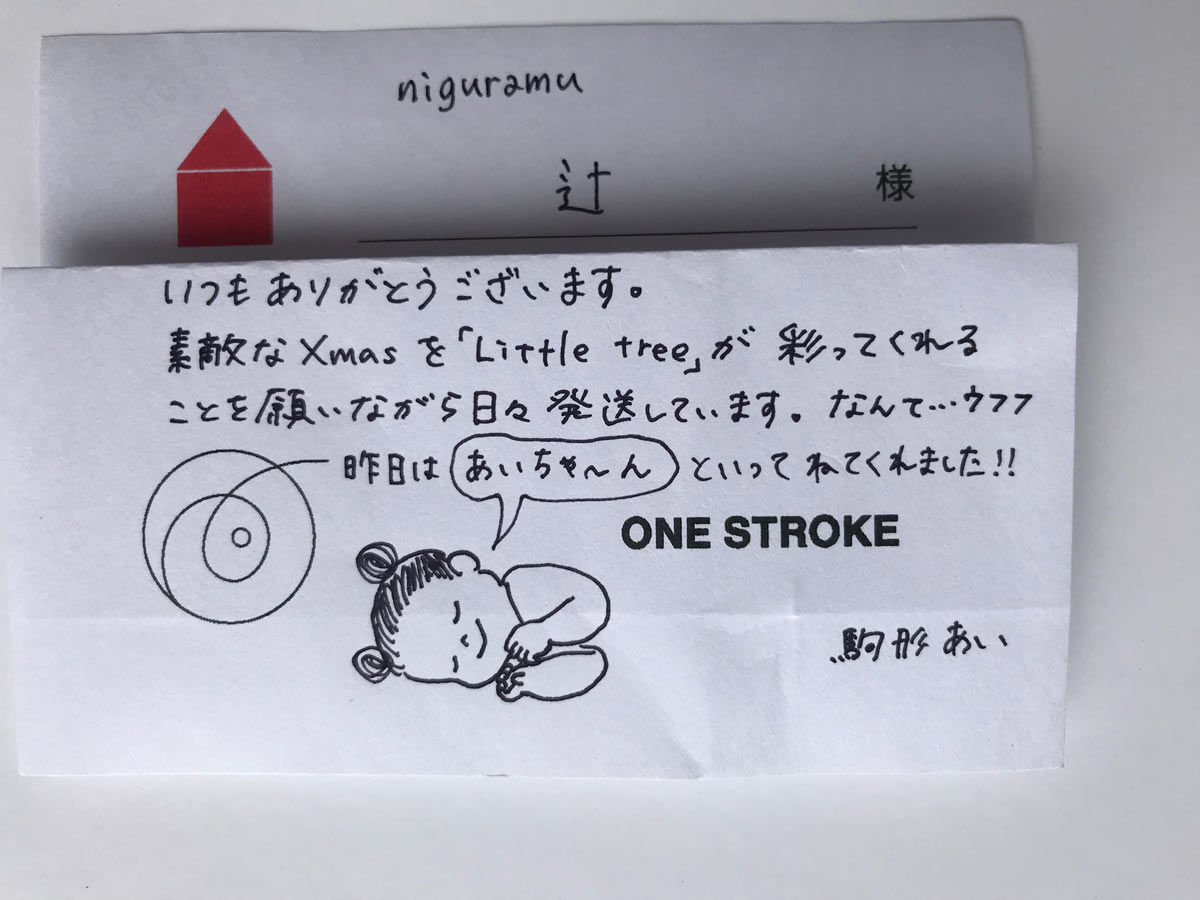 niguramu
辻 様
いつもありがとうございます。
素敵なXmasを「Little tree」が彩ってくれる
ことを願いながら日々発送しています。なんて…ウフフ
昨日は あいちゃ〜ん といってねてくれました!!
ONE STROKE
駒形あい